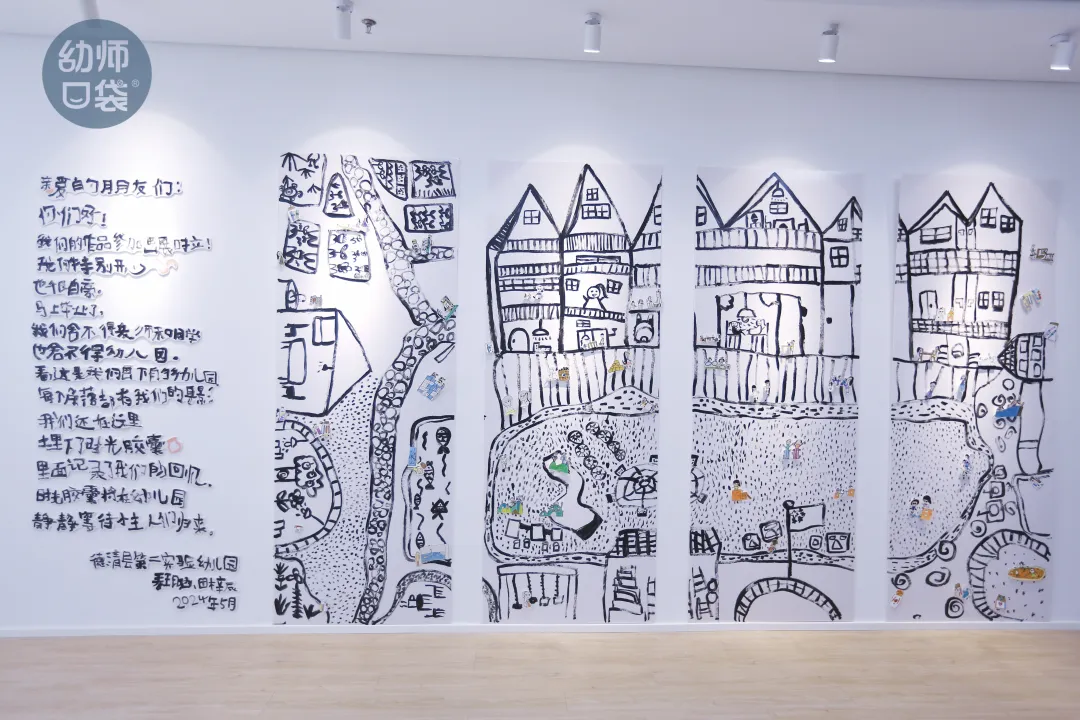 幼师
口袋®
亲爱的朋友们：
你们好！
我们的作品参加画展啦！
我们特别开心
也很自豪。
马上毕业了，
我们舍不得老师和同学
也舍不得幼儿园。
看这是我们画下的幼儿园
每个角落都有我们的身影
我们还在这里
埋下了时光胶囊
里面记录了我们的回忆，
时光胶囊将在幼儿园
静静等待小主人们归来。
德清县第一实验幼儿园
2024年5月